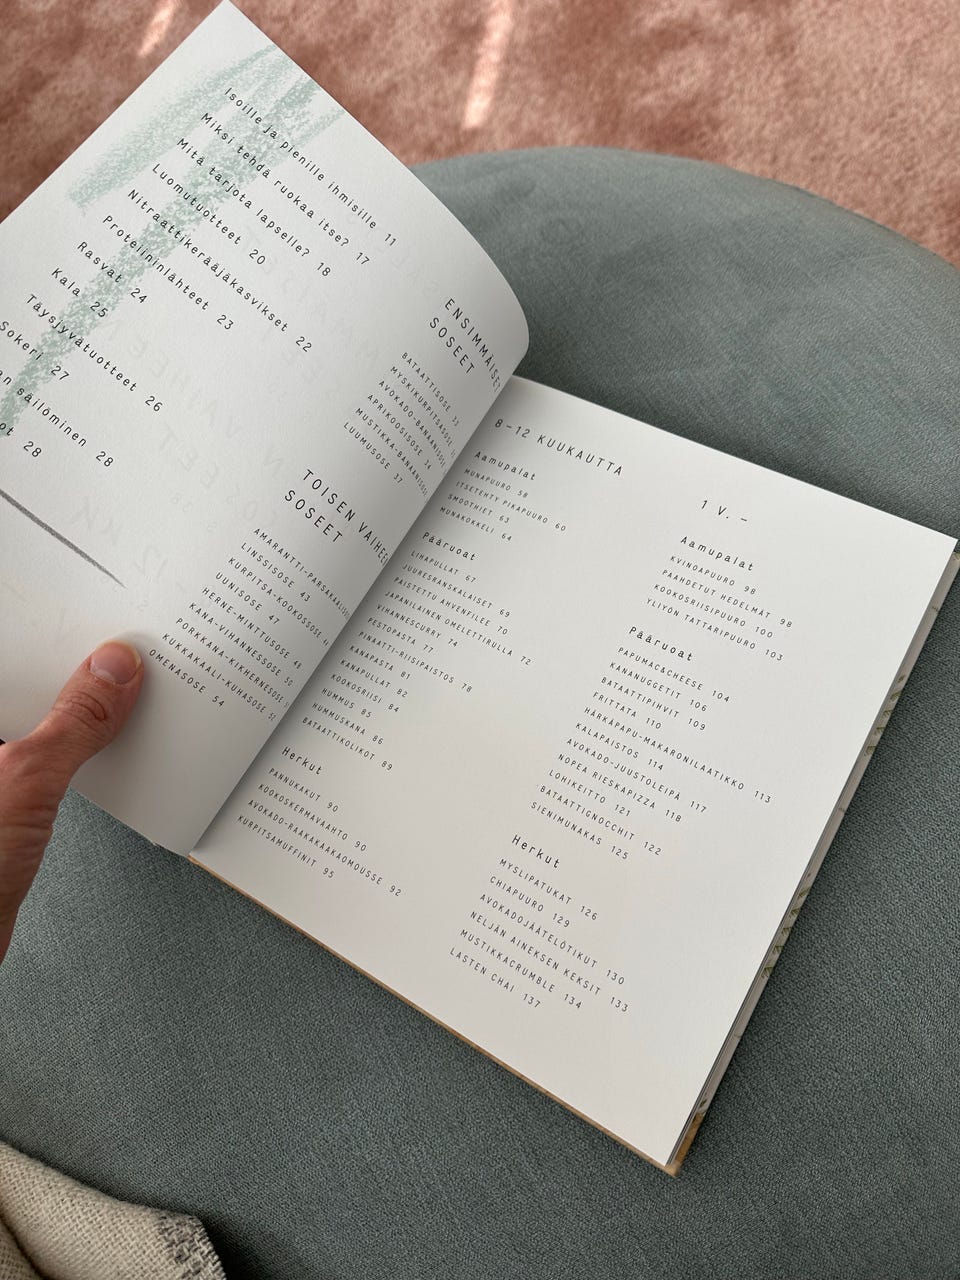 Isoille ja pienille ihmisille 11
Miksi tehdä ruokaa itse? 17
Mitä tarjota lapselle? 18
Luomutuotteet 20
Nitraattikerääjäkasvikset 22
Proteiininlähteet 23
Rasvat 24
Kala 25
Täysjyvätuotteet 26
Sokeri 27
säilöminen 28
28
ENSIMMÄISET
SOSEET
BATAATTISOSE 33
MYSKIKURPITSASOSE
AVOKADO-BANAANISOSE
APRIKOOSISOSE 34
MUSTIKKA-BANAANISOSE
LUUMUSOSE 37
TOISEN VAIHEET
SOSEET
AMARANTTI-PARSAKAALISOSE
LINSSISOSE 43
KURPITSA-KOOKOSSOSE 44
UUNISOSE 47
HERNE-MINTTUSOSE 48
KANA-VIHANNESSOSE 50
PORKKANA-KIKHERNESOSE
KUKKAKAALI-KUHASOSE 52
OMENASOSE 54
8–12 KUUKAUTTA
Aamupalat
MUNAPUURO 58
ITSETEHTY PIKAPUURO 60
SMOOTHIET 63
MUNAKOKKELI 64
Pääruoat
LIHAPULLAT 67
JUURESRANSKALAISET 69
PAISTETTU AHVENFILEE 70
JAPANILAINEN OMELETTIRULLA 72
VIHANNESCURRY 74
PESTOPASTA 77
PINAATTI-RIISIPAISTOS 78
KANAPASTA 81
KANAPULLAT 82
KOOKOSRIISI 84
HUMMUS 85
HUMMUSKANA 86
BATAATTIKOLIKOT 89
Herkut
PANNUKAKUT 90
KOOKOSKERMAVAAHTO 90
AVOKADO-RAAKAKAAKAOMOUSSE 92
KURPITSAMUFFINIT 95
1 V. –
Aamupalat
KVINOAPUURO 98
PAAHDETUT HEDELMÄT 98
KOOKOSRIISIPUURO 100
YLIYÖN TATTARIPUURO 103
Pääruoat
PAPUMAC&CHEESE 104
KANANUGGETIT 106
BATAATTIPIHVIT 109
FRITTATA 110
HÄRKÄPAPU-MAKARONILAATIKKO 113
KALAPAISTOS 114
AVOKADO-JUUSTOLEIPÄ 117
NOPEA RIESKAPIZZA 118
LOHIKEITTO 121
BATAATTIGNOCCHIT 122
SIENIMUNAKAS 125
Herkut
MYSLIPATUKAT 126
CHIAPUURO 129
AVOKADOJÄÄTELÖTIKUT 130
NELJÄN AINEKSEN KEKSIT 133
MUSTIKKACRUMBLE 134
LASTEN CHAI 137